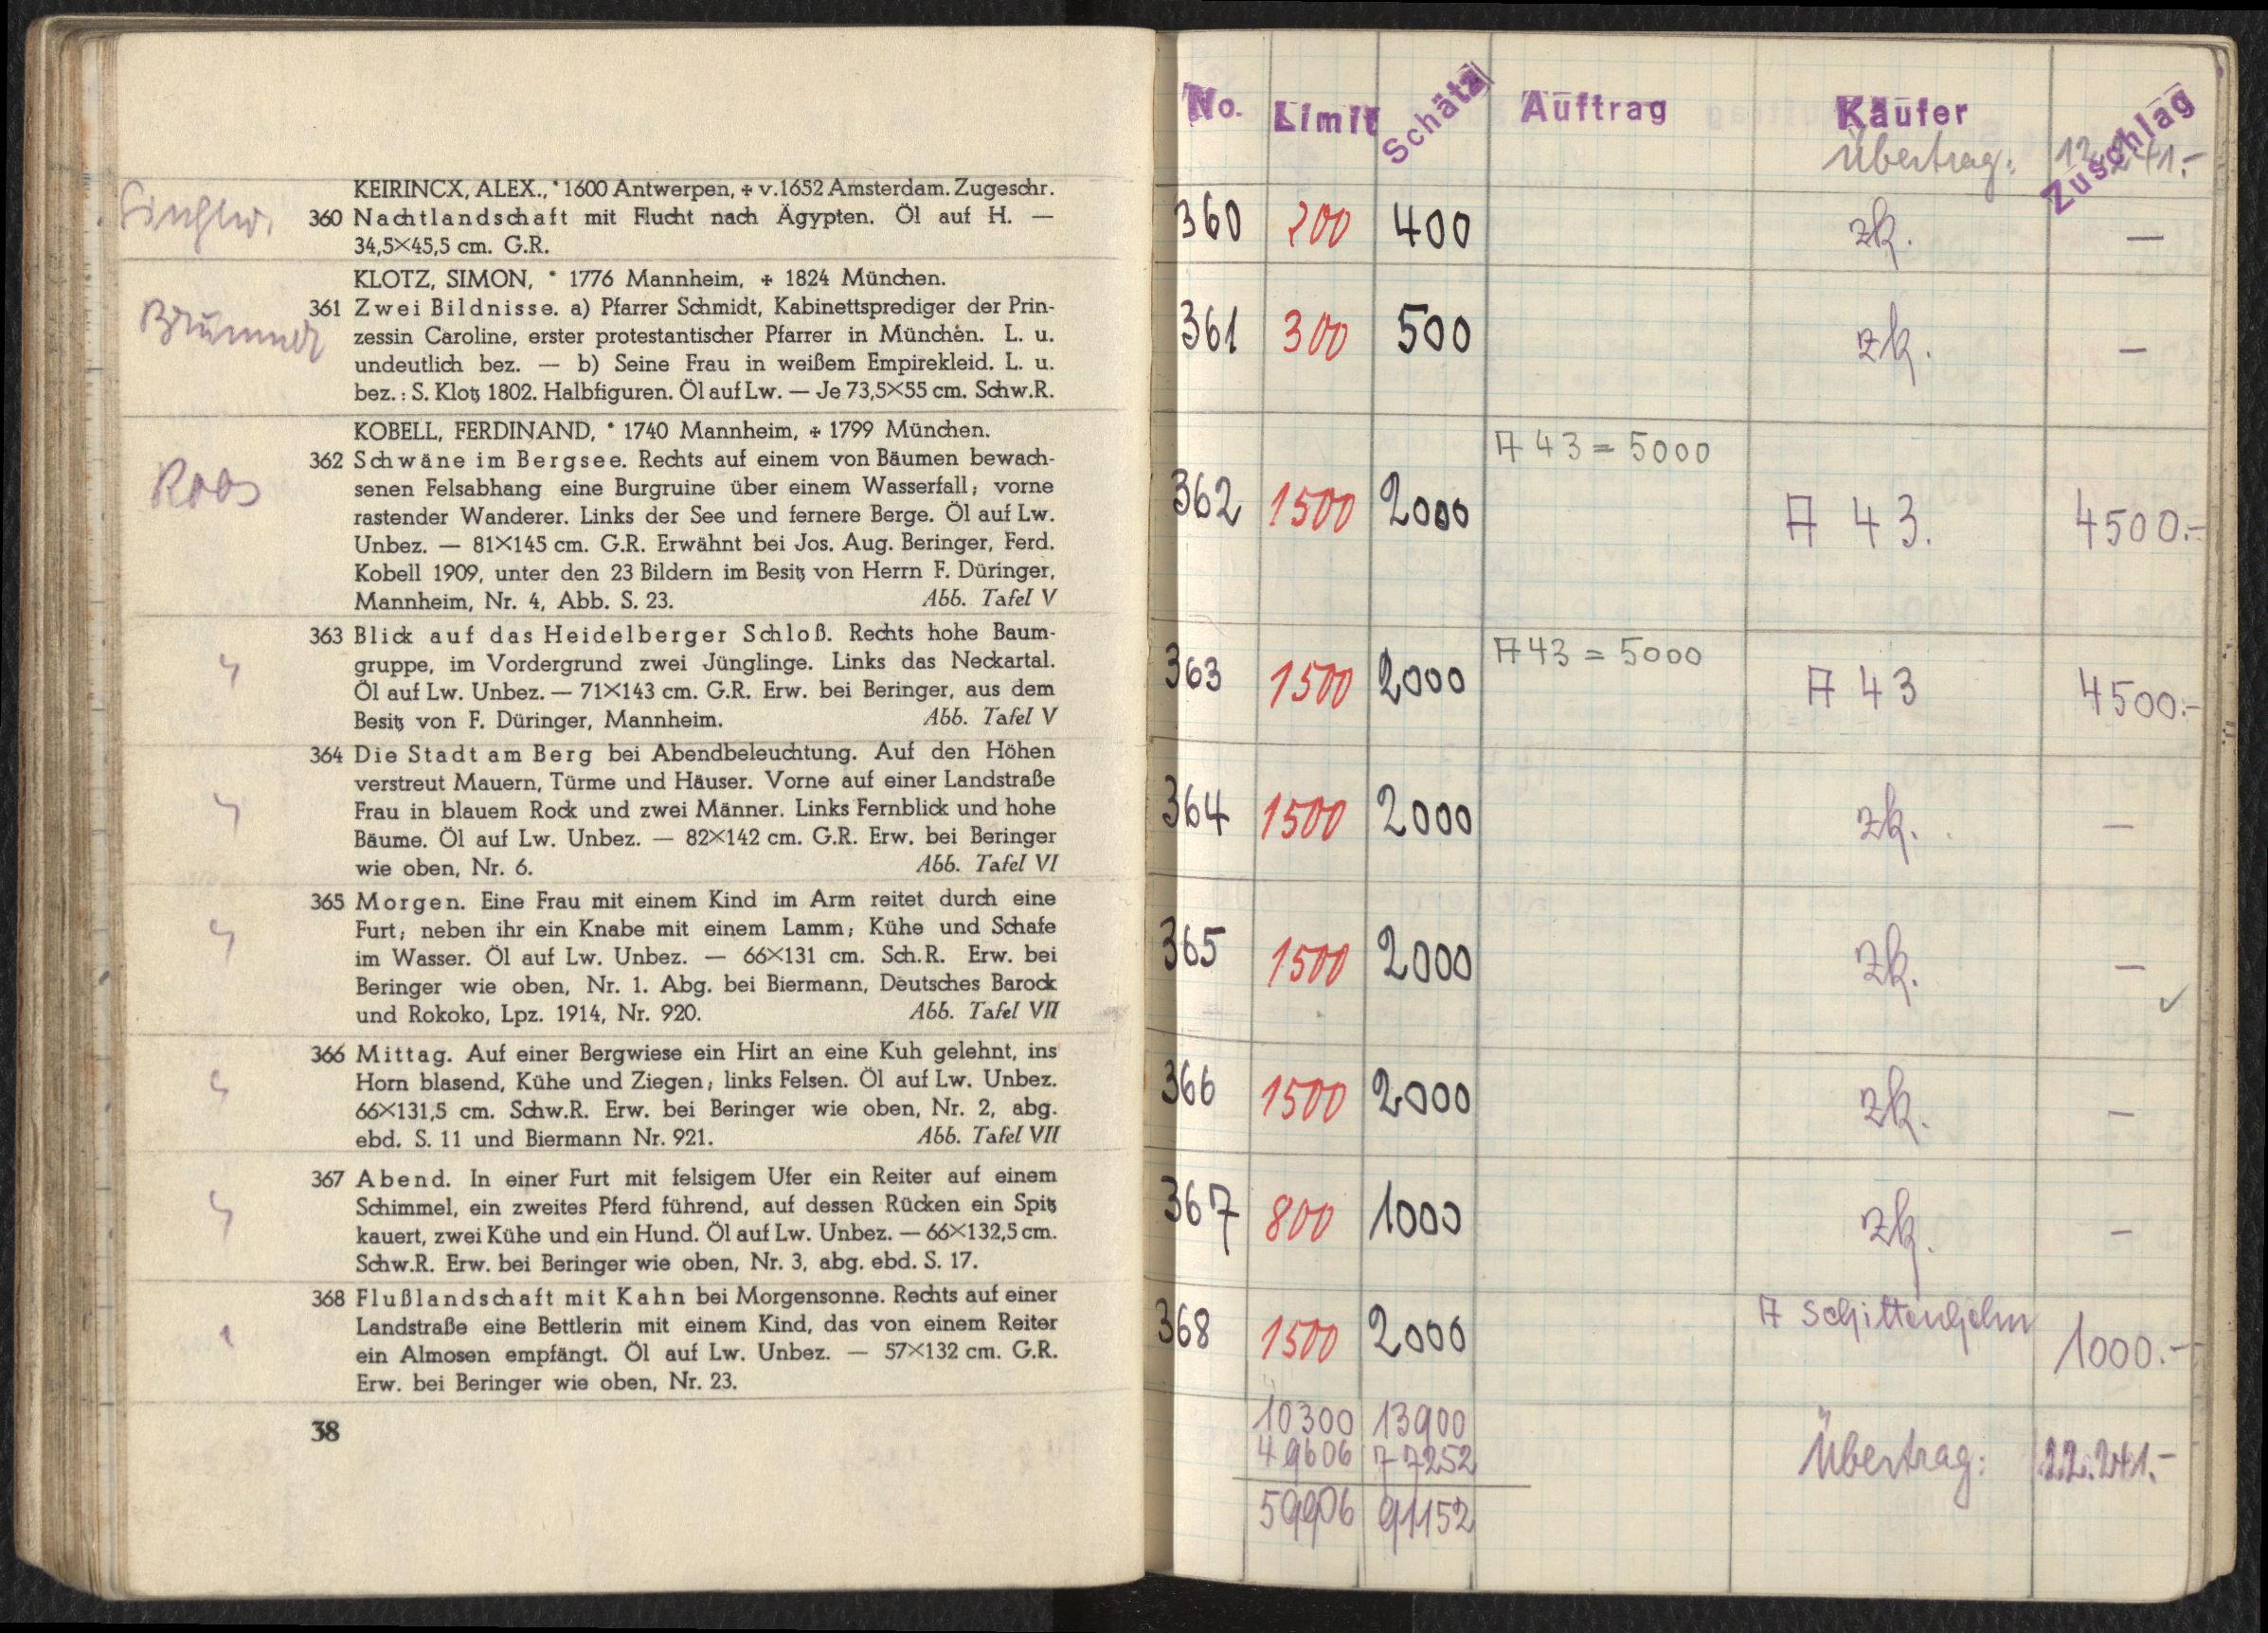 KEIRINCX, ALEX., * 1600 Antwerpen, + v.1652 Amsterdam. Zugeschr.
360 Nachtlandschaft mit Flucht nach Ägypten. Öl auf H. —
34,5×45,5 cm. G.R.
KLOTZ, SIMON, * 1776 Mannheim, + 1824 München.
Brummer
361 Zwei Bildnisse. a) Pfarrer Schmidt, Kabinettsprediger der Prin-
zessin Caroline, erster protestantischer Pfarrer in München. L. u.
undeutlich bez. — b) Seine Frau in weißem Empirekleid. L. u.
bez.: S. Klotz 1802. Halbfiguren. Öl auf Lw. — Je 73,5×55 cm. Schw.R.
KOBELL, FERDINAND, * 1740 Mannheim, + 1799 München.
Roos
362 Schwäne im Bergsee. Rechts auf einem von Bäumen bewach-
senen Felsabhang eine Burgruine über einem Wasserfall; vorne
rastender Wanderer. Links der See und fernere Berge. Öl auf Lw.
Unbez. — 81×145 cm. G.R. Erwähnt bei Jos. Aug. Beringer, Ferd.
Kobell 1909, unter den 23 Bildern im Besitz von Herrn F. Düringer,
Mannheim, Nr. 4, Abb. S. 23. Abb. Tafel V
363 Blick auf das Heidelberger Schloß. Rechts hohe Baum-
gruppe, im Vordergrund zwei Jünglinge. Links das Neckartal.
Öl auf Lw. Unbez. — 71×143 cm. G.R. Erw. bei Beringer, aus dem
Besitz von F. Düringer, Mannheim. Abb. Tafel V
364 Die Stadt am Berg bei Abendbeleuchtung. Auf den Höhen
verstreut Mauern, Türme und Häuser. Vorne auf einer Landstraße
Frau in blauem Rock und zwei Männer. Links Fernblick und hohe
Bäume. Öl auf Lw. Unbez. — 82×142 cm. G.R. Erw. bei Beringer
wie oben, Nr. 6. Abb. Tafel VI
365 Morgen. Eine Frau mit einem Kind im Arm reitet durch eine
Furt; neben ihr ein Knabe mit einem Lamm; Kühe und Schafe
im Wasser. Öl auf Lw. Unbez. — 66×131 cm. Sch.R. Erw. bei
Beringer wie oben, Nr. 1. Abg. bei Biermann, Deutsches Barock
und Rokoko, Lpz. 1914, Nr. 920. Abb. Tafel VII
366 Mittag. Auf einer Bergwiese ein Hirt an eine Kuh gelehnt, ins
Horn blasend, Kühe und Ziegen; links Felsen. Öl auf Lw. Unbez.
66×131,5 cm. Schw.R. Erw. bei Beringer wie oben, Nr. 2, abg.
ebd. S. 11 und Biermann Nr. 921. Abb. Tafel VII
367 Abend. In einer Furt mit felsigem Ufer ein Reiter auf einem
Schimmel, ein zweites Pferd führend, auf dessen Rücken ein Spitz
kauert, zwei Kühe und ein Hund. Öl auf Lw. Unbez. — 66×132,5 cm.
Schw.R. Erw. bei Beringer wie oben, Nr. 3, abg. ebd. S. 17.
368 Flußlandschaft mit Kahn bei Morgensonne. Rechts auf einer
Landstraße eine Bettlerin mit einem Kind, das von einem Reiter
ein Almosen empfängt. Öl auf Lw. Unbez. — 57×132 cm. G.R.
Erw. bei Beringer wie oben, Nr. 23.
38
No. Limit Schätz Auftrag Käufer Zuschlag
Übertrag:
360 200 400 zk. —
361 300 500 zk. —
A 43 = 5000
362 1500 2000 A 43. 4500.-
A 43 = 5000
363 1500 2000 A 43 4500.-
364 1500 2000 zk. —
365 1500 2000 zk. —
366 1500 2000 zk. —
367 800 1000 zk. —
368 1500 2000 A Schittenhelm 1000.-
10300 13900
49606 77252
Übertrag: 22.241.-
59906 91152